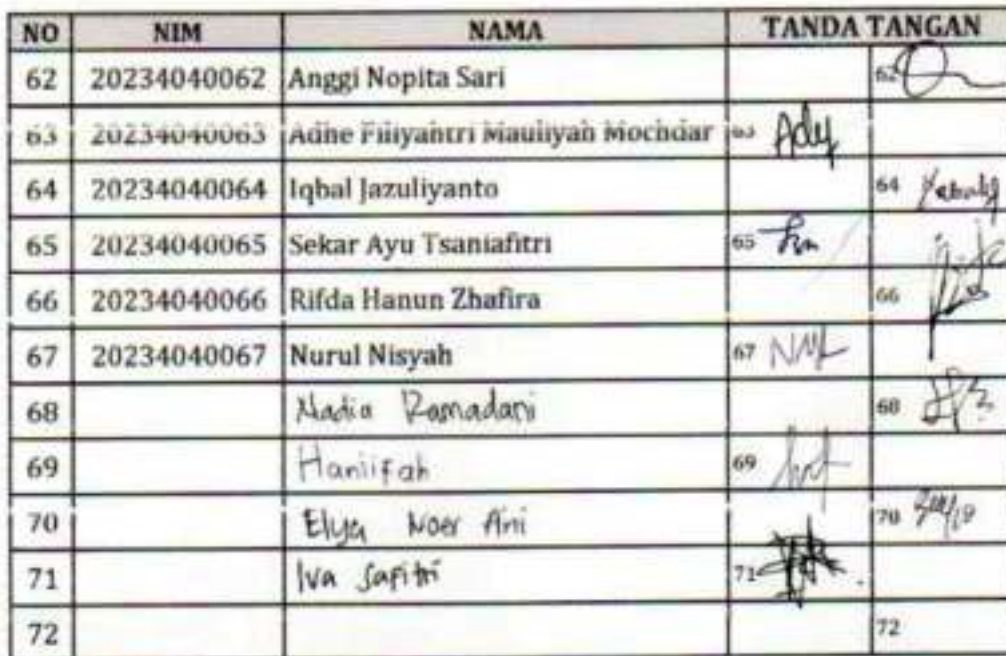 NO NIM NAMA TANDA TANGAN
62 20234040062 Anggi Nopita Sari 62
63 20234040063 Adhe Fihyahtri Mauliyah Mochdar 63
64 20234040064 Iqbal Jazuliyanto 64
65 20234040065 Sekar Ayu Tsaniafitri 65
66 20234040066 Rifda Hanun Zhafira 66
67 20234040067 Nurul Nisyah 67
68 Nadia Ramadani 68
69 Haniifah 69
70 Elya Noer Aini 70
71 Iva Safitri 71
72 72